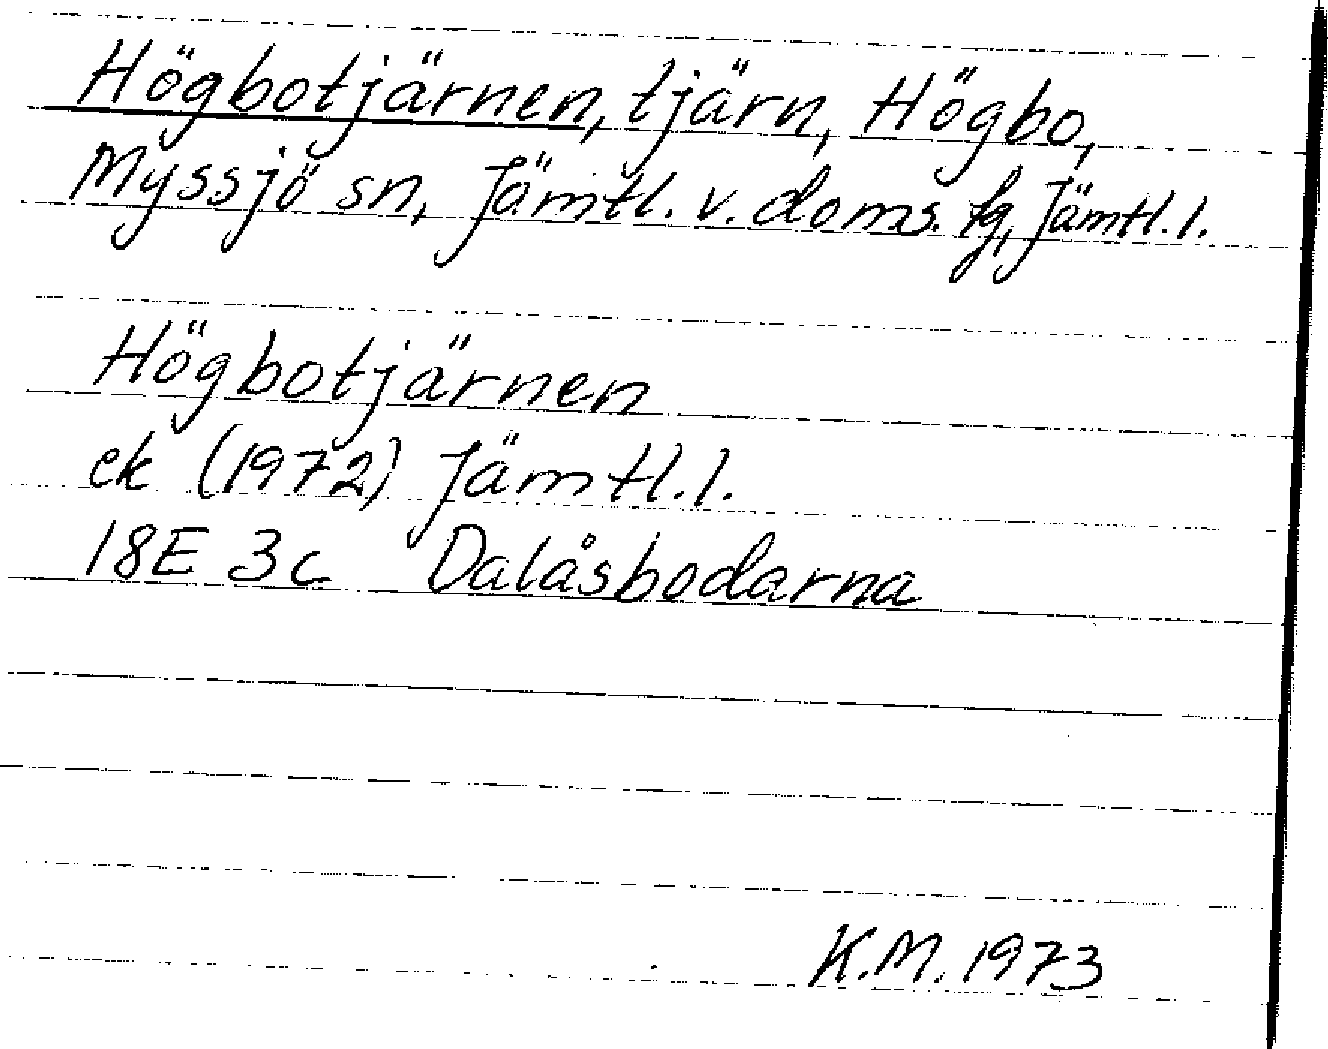 Högbotjärnen, tjärn, Högbo,
Myssjö sn, Jämtl. v. doms. fg, Jämtl. l.
Högbotjärnen
ek (1972) Jämtl. l.
18E 3c Dalåsbodarna
K.M. 1973